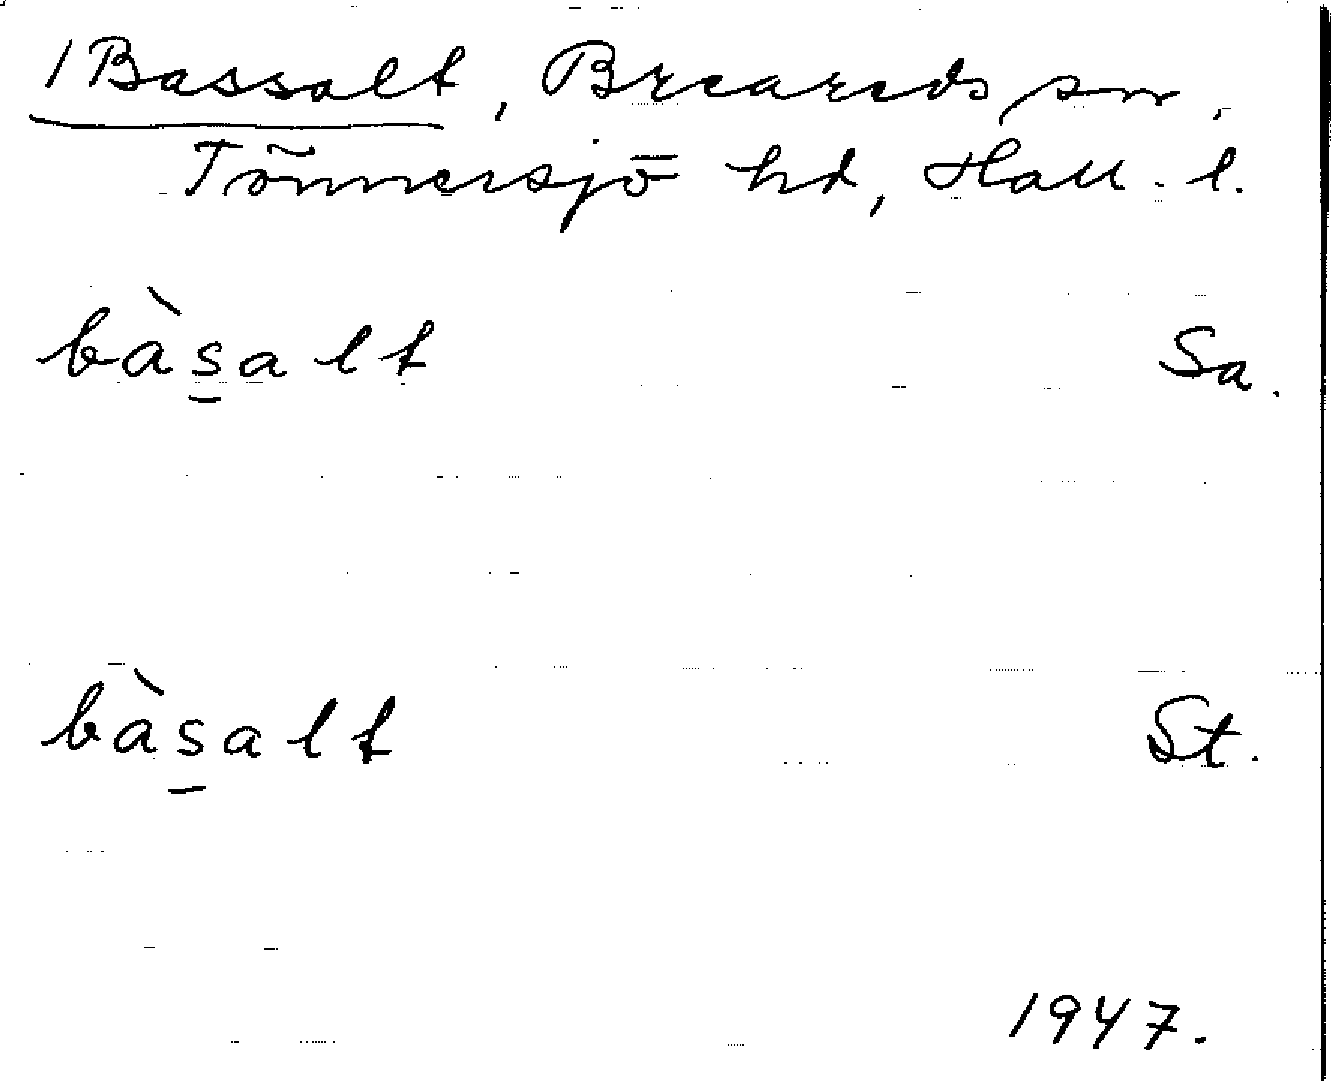 1 Bassalt, Breareds sn,
Tönnersjö hd, Hall. l.
bàs̠alt Sa.
bàs̠alt St.
1947.